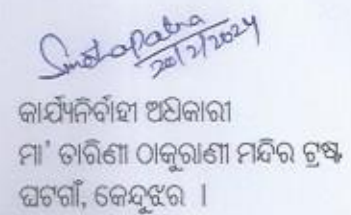 20/2/2024
କାର୍ଯ୍ୟନିର୍ବାହୀ ଅଧିକାରୀ
ମା' ତାରିଣୀ ଠାକୁରାଣୀ ମନ୍ଦିର ଟ୍ରଷ୍ଟ
ଘଟଗାଁ, କେନ୍ଦୁଝର ।